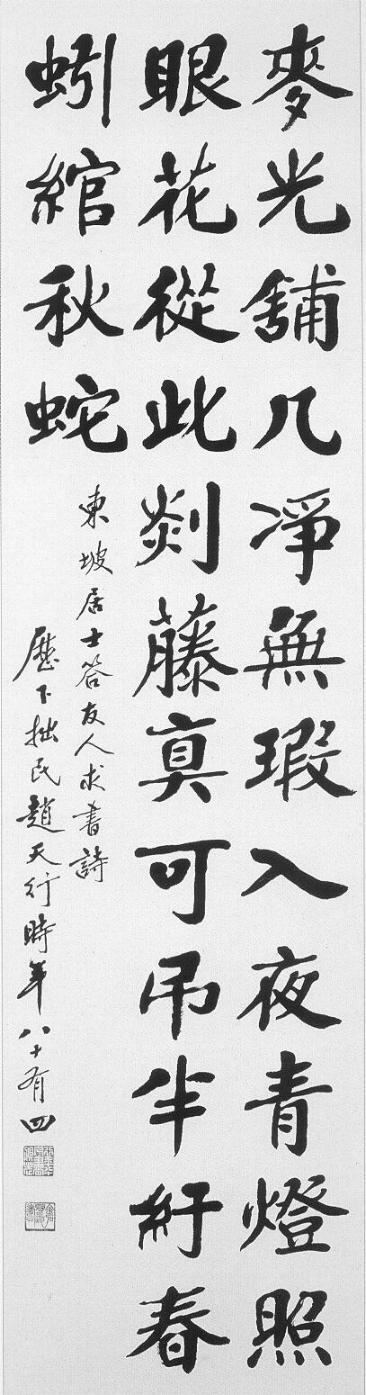 麥光舖几凈無瑕入夜青燈照
眼花從此剡藤真可吊半紆春
蚓綰秋蛇
東坡居士答友人求書詩
歷下拙民趙天行時年八十有四